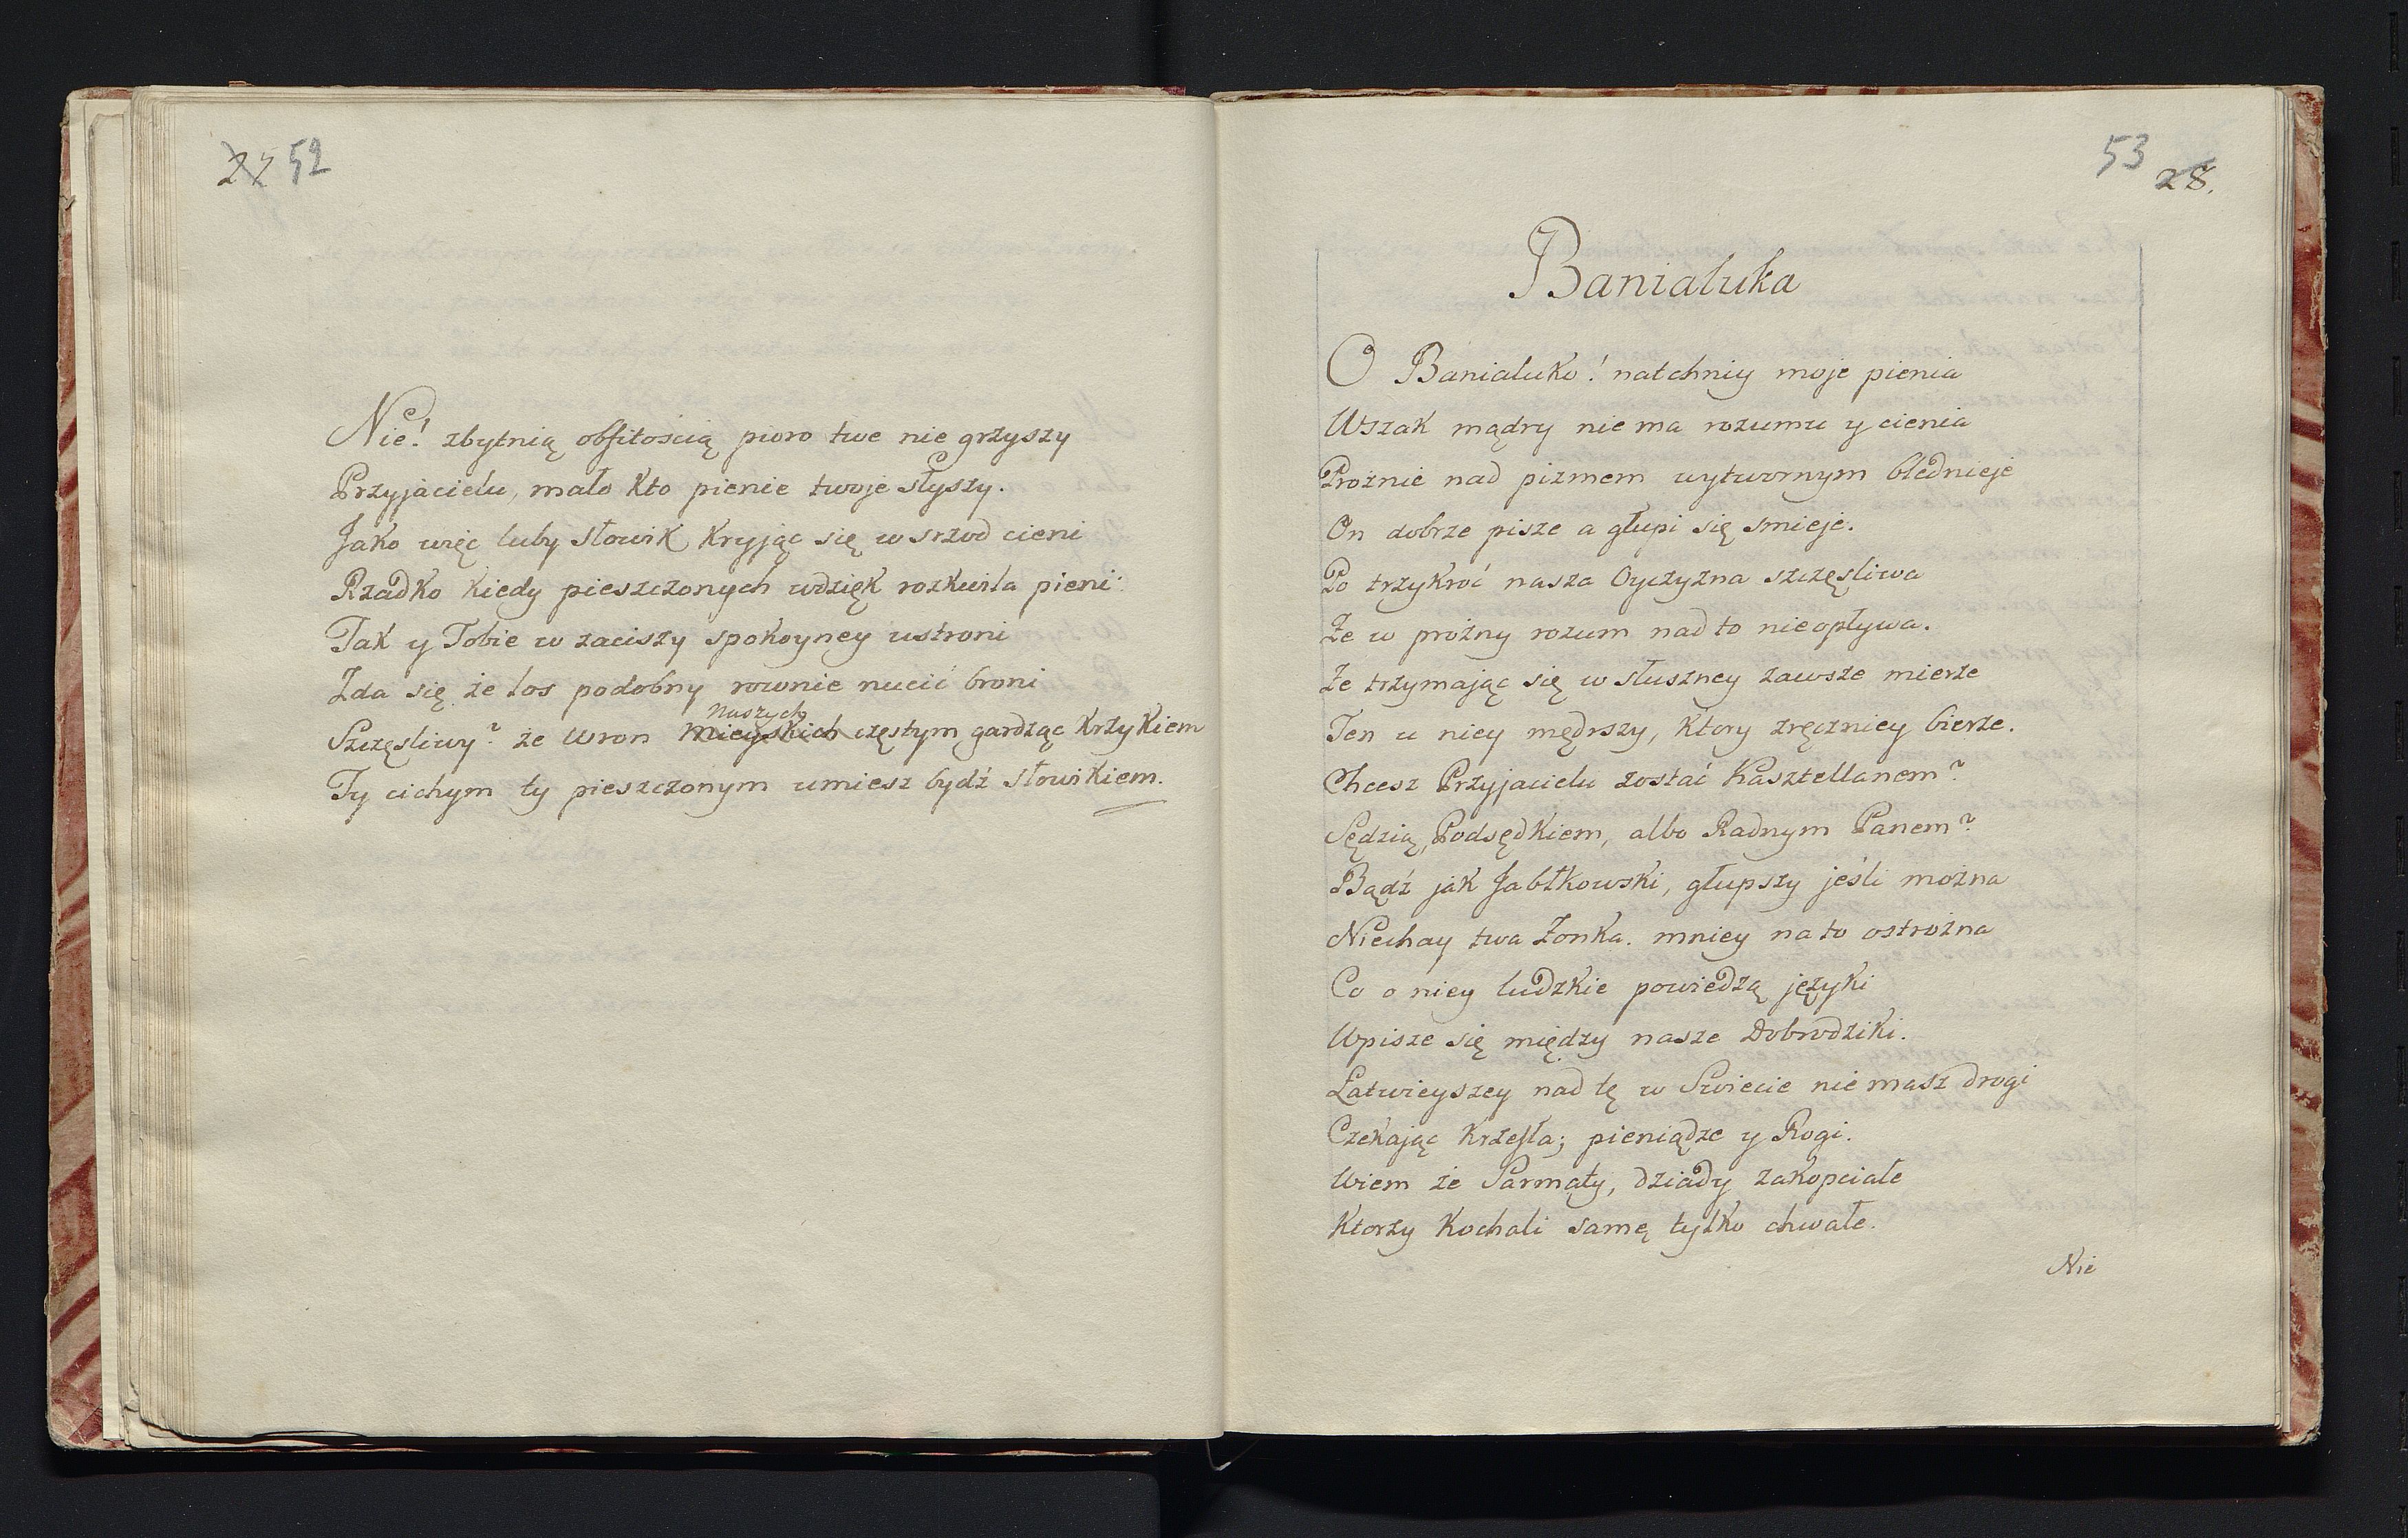 27 52
Nie! zbytnią obfitością pioro twe nie grzyszy
Przyjacielu, mało kto pienie twoje słyszy.
Jako więc luby słowik kryjąc się w srzod cieni
Rzadko kiedy pieszczonych wdzięk rozkwila pieni:
Tak y Tobie w zaciszy spokoyney ustroni
Zda się że los podobny rownie nucić broni
naszych
Szczęsliwy? że wron mieyskich częstym gardząc krzykiem
Ty cichym ty pieszczonym umiesz bydź słowikiem.
53 28.
Banialuka
O Banialuko! natchniy moje pienia
Wszak mądry nie ma rozumu y cienia
Prożnie nad pizmem wytwornym blednieje
On dobrze pisze a głupi się smieje.
Po trzykroć nasza Oyczyzna szczęsliwa
Że w prożny rozum nad to nieopływa.
Że trzymając się w słuszney zawsze mierze
Ten u niey mędrszy, ktory zręczniey bierze.
Chcesz Przyjacielu zostać Kasztellanem?
Sędzią, Podsędkiem, albo Radnym Panem?
Bądź jak Jabłkowski, głupszy jeśli można
Niechay twa Żonka. mniey na to ostrożna
Co o niey ludzkie powiedzą języki
Wpisze się między nasze Dobrodziki.
Łatwieyszey nad tę w Swiecie nie masz drogi
Czekając krzesła; pieniądze y Rogi.
Wiem że Sarmaty, dziady zakopciałe
Ktorzy kochali samę tylko chwałe.
Nie